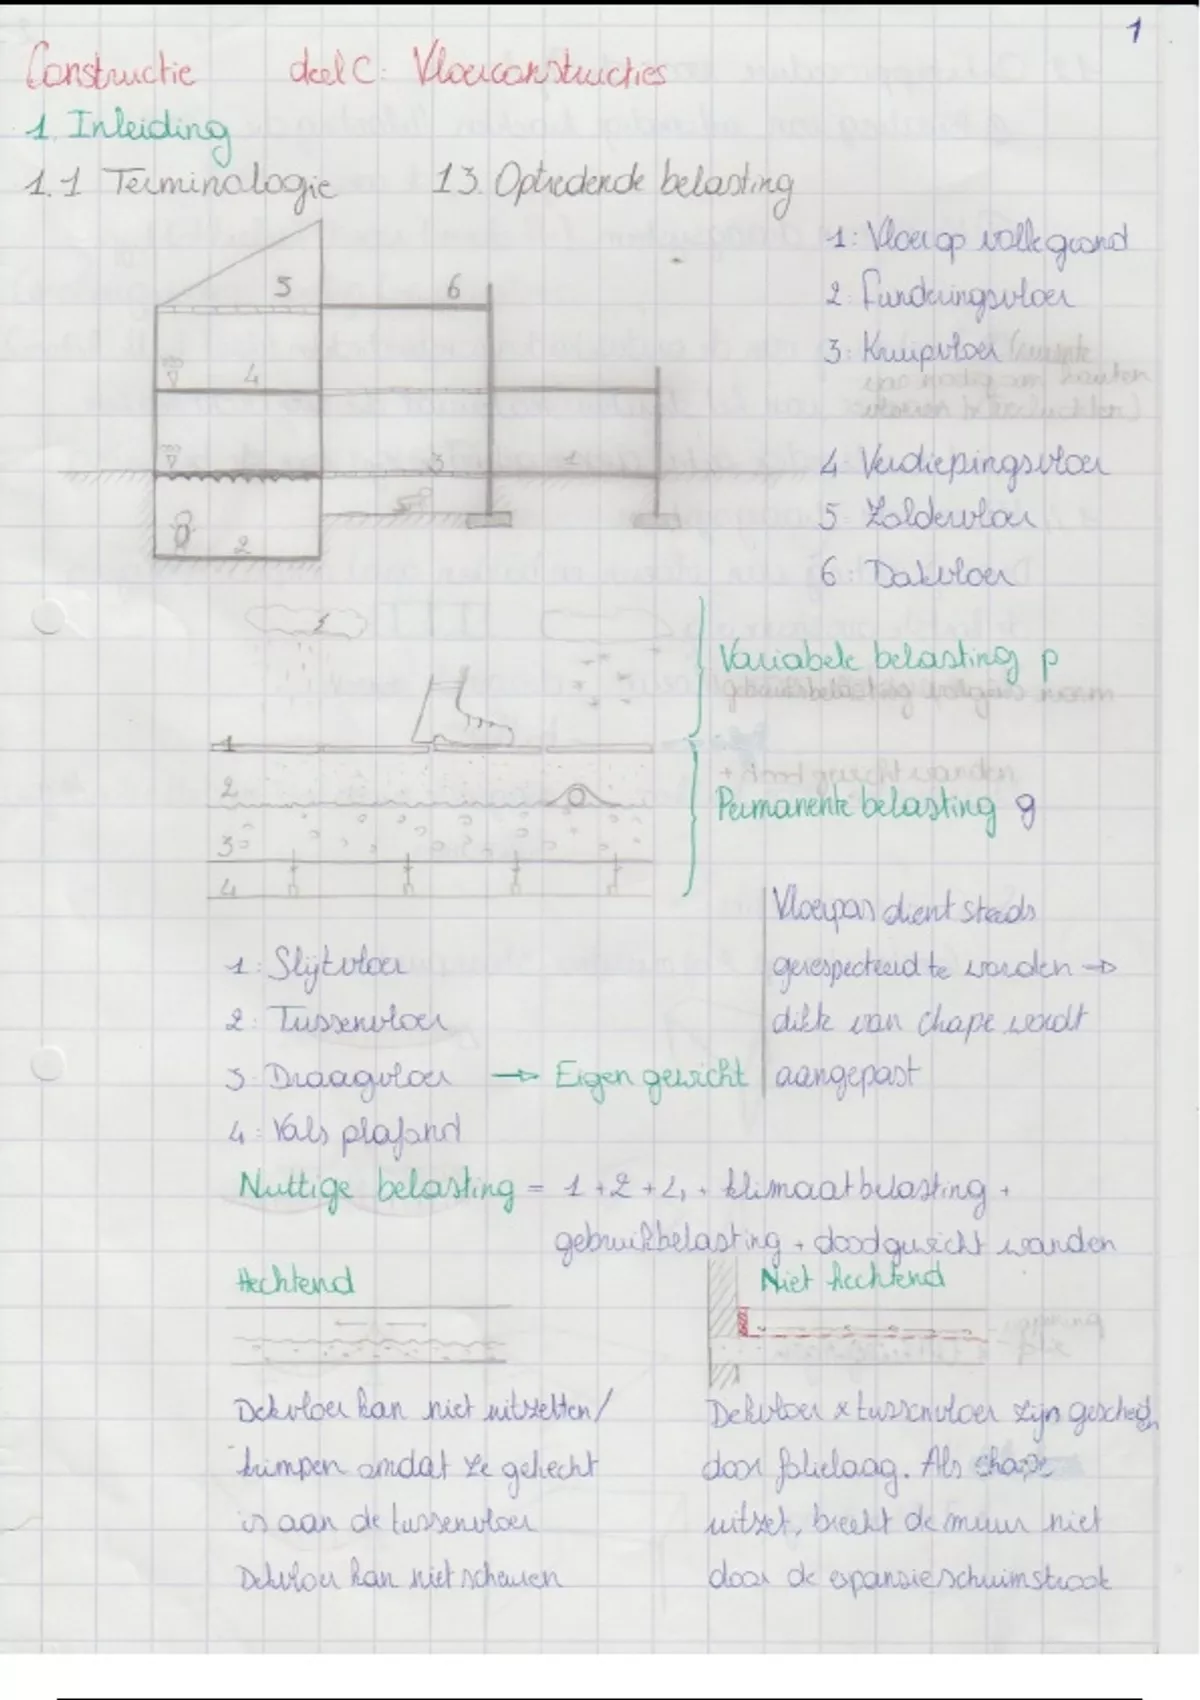 1
Constructie deel C: Vloerconstructies
1. Inleiding
1.1 Terminologie 1.3. Optredende belasting
1: Vloer op volle grond
2: Funderingsvloer
3: Kruipvloer (ruimte
4 Verdiepingsvloer
5 Zoldervloer
6: Dakvloer
5 6
4
3 1
2
Variabele belasting p
1
2
3
4
Permanente belasting g
Vloerpas dient steeds
gerespecteerd te worden →
dikte van chape wordt
aangepast
1: Slijtvloer
2: Tussenvloer
3: Draagvloer → Eigen gewicht
4: Vals plafond
Nuttige belasting = 1 + 2 + 4 + klimaatbelasting +
gebruikbelasting + doodgewicht wanden
Hechtend
Dekvloer kan niet uitzetten/
krimpen omdat ze gehecht
is aan de tussenvloer
Dekvloer kan niet scheuren
Niet hechtend
Dekvloer & tussenvloer zijn gescheid
door folielaag. Als chape
uitzet, breekt de muur niet
door de expansieschuimstrook